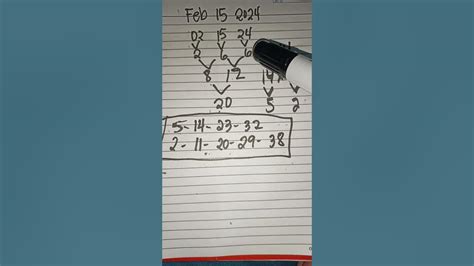 Feb 15 2024
02 15 24
2 6 6
8 12 14
20 5 2
5-14-23-32
2-11-20-29-38